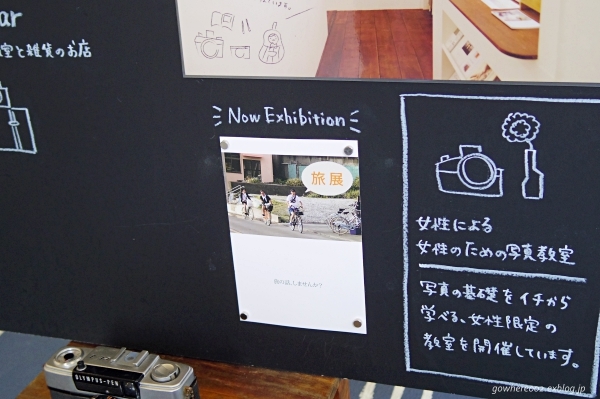 ar
室と雑貨のお店
Now Exhibition
旅展
旅の話、しませんか?
女性による
女性のための写真教室
写真の基礎をイチから
学べる、女性限定の
教室を開催しています。
OLYMPUS-PEN
gowherecooz.exblog.jp